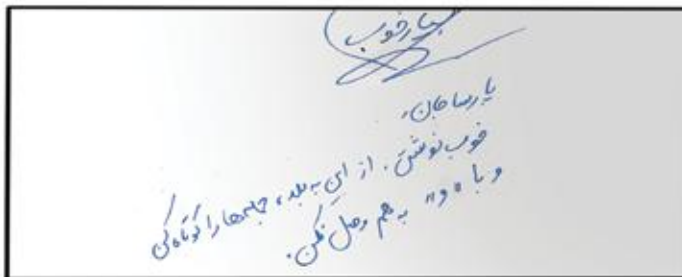 بسیار خوب
پارسا جان،
خوب نوشتی. از این به بعد، جمله‌ها را کوتاه کن
و با «و» به هم وصل نکن.